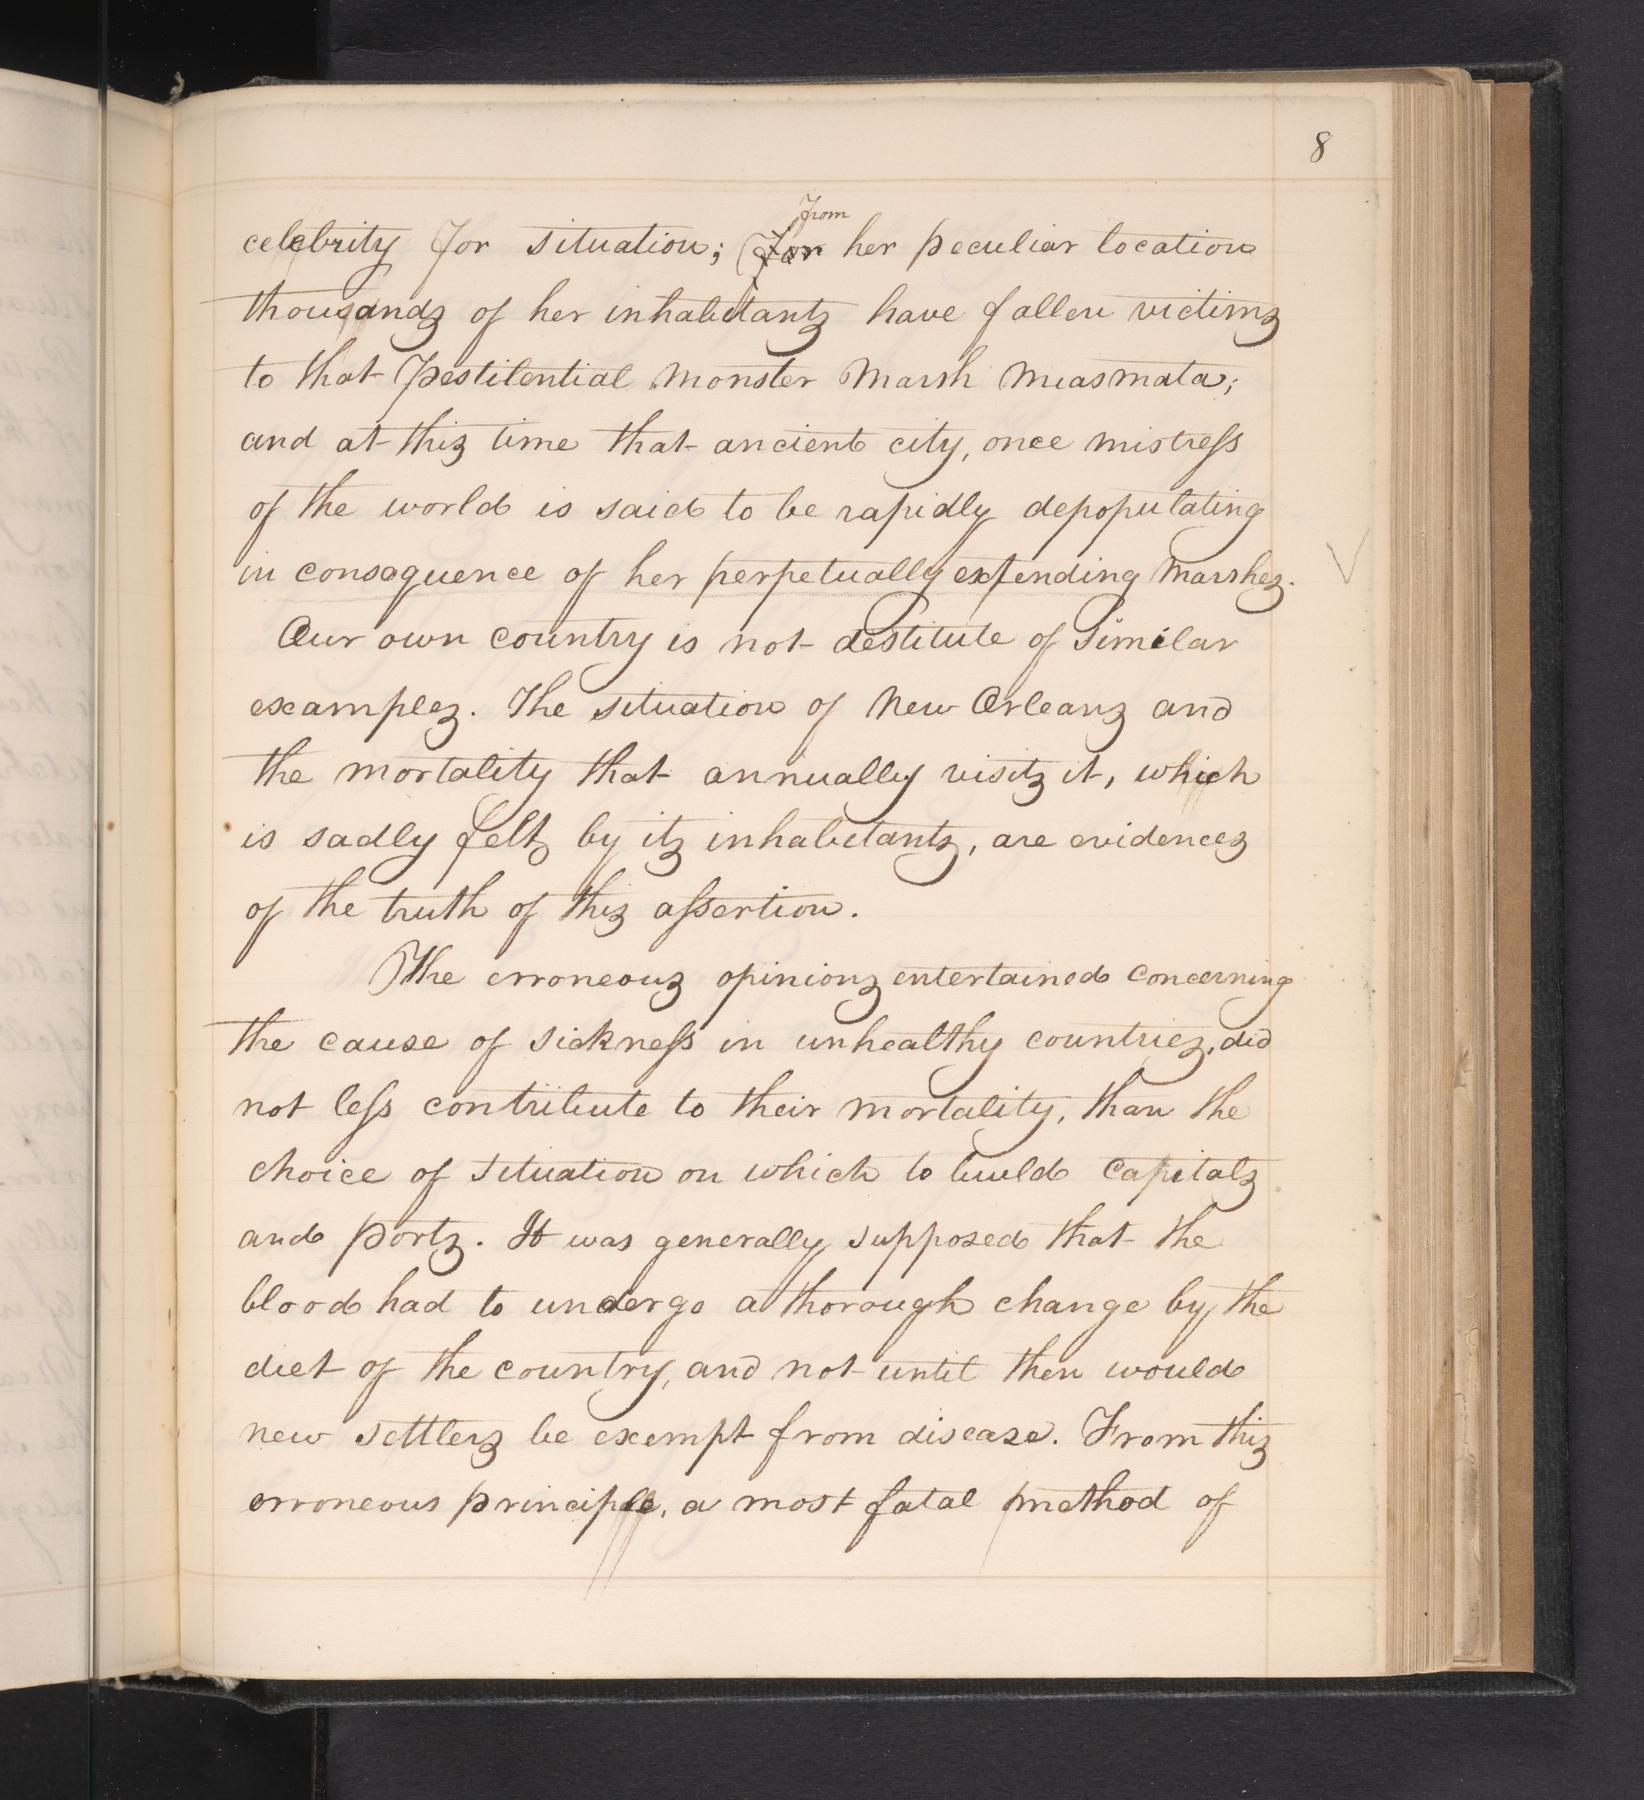 8
from
celebrity for situation; (for her peculiar location
thousands of her inhabitants have fallen victims
to that Pestilential Monster Marsh Miasmata;
and at this time that ancient city, once mistress
of the world is said to be rapidly depopulating
in consequence of her perpetually extending Marshes.
Our own country is not destitute of similar
examples. The situation of New Orleans and
the mortality that annually visits it, which
is sadly felt by its inhabitants, are evidences
of the truth of this assertion.
The erroneous opinions entertained concerning
the cause of sickness in unhealthy countries, did
not less contribute to their mortality, than the
choice of situation on which to build Capitals
and ports. It was generally supposed that the
blood had to undergo a thorough change by the
diet of the country, and not until then would
new settlers be exempt from disease. From this
erroneous principle, a most fatal method of